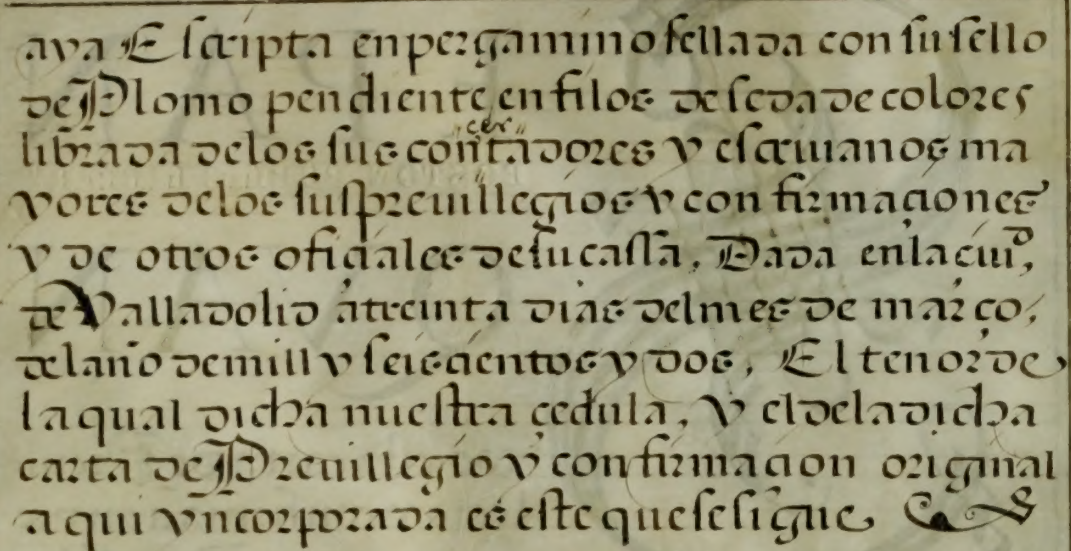 aya Escripta en pergamino sellada con su sello
de Plomo pendiente en filos de seda de colores
librada delos sus concertadores y escriuanos ma
yores delos sus preuillegios y con firmaciones
y de otros oficiales de su cassa, Dada en la ciud,
de Valladolid a treinta dias del mes de março,
del año de mill y seiscientos y dos, El tenor de
la qual dicha nuestra çedula, y el dela dicha
carta de Preuillegio y confirmacion original
a qui yncorporada es este que se sigue